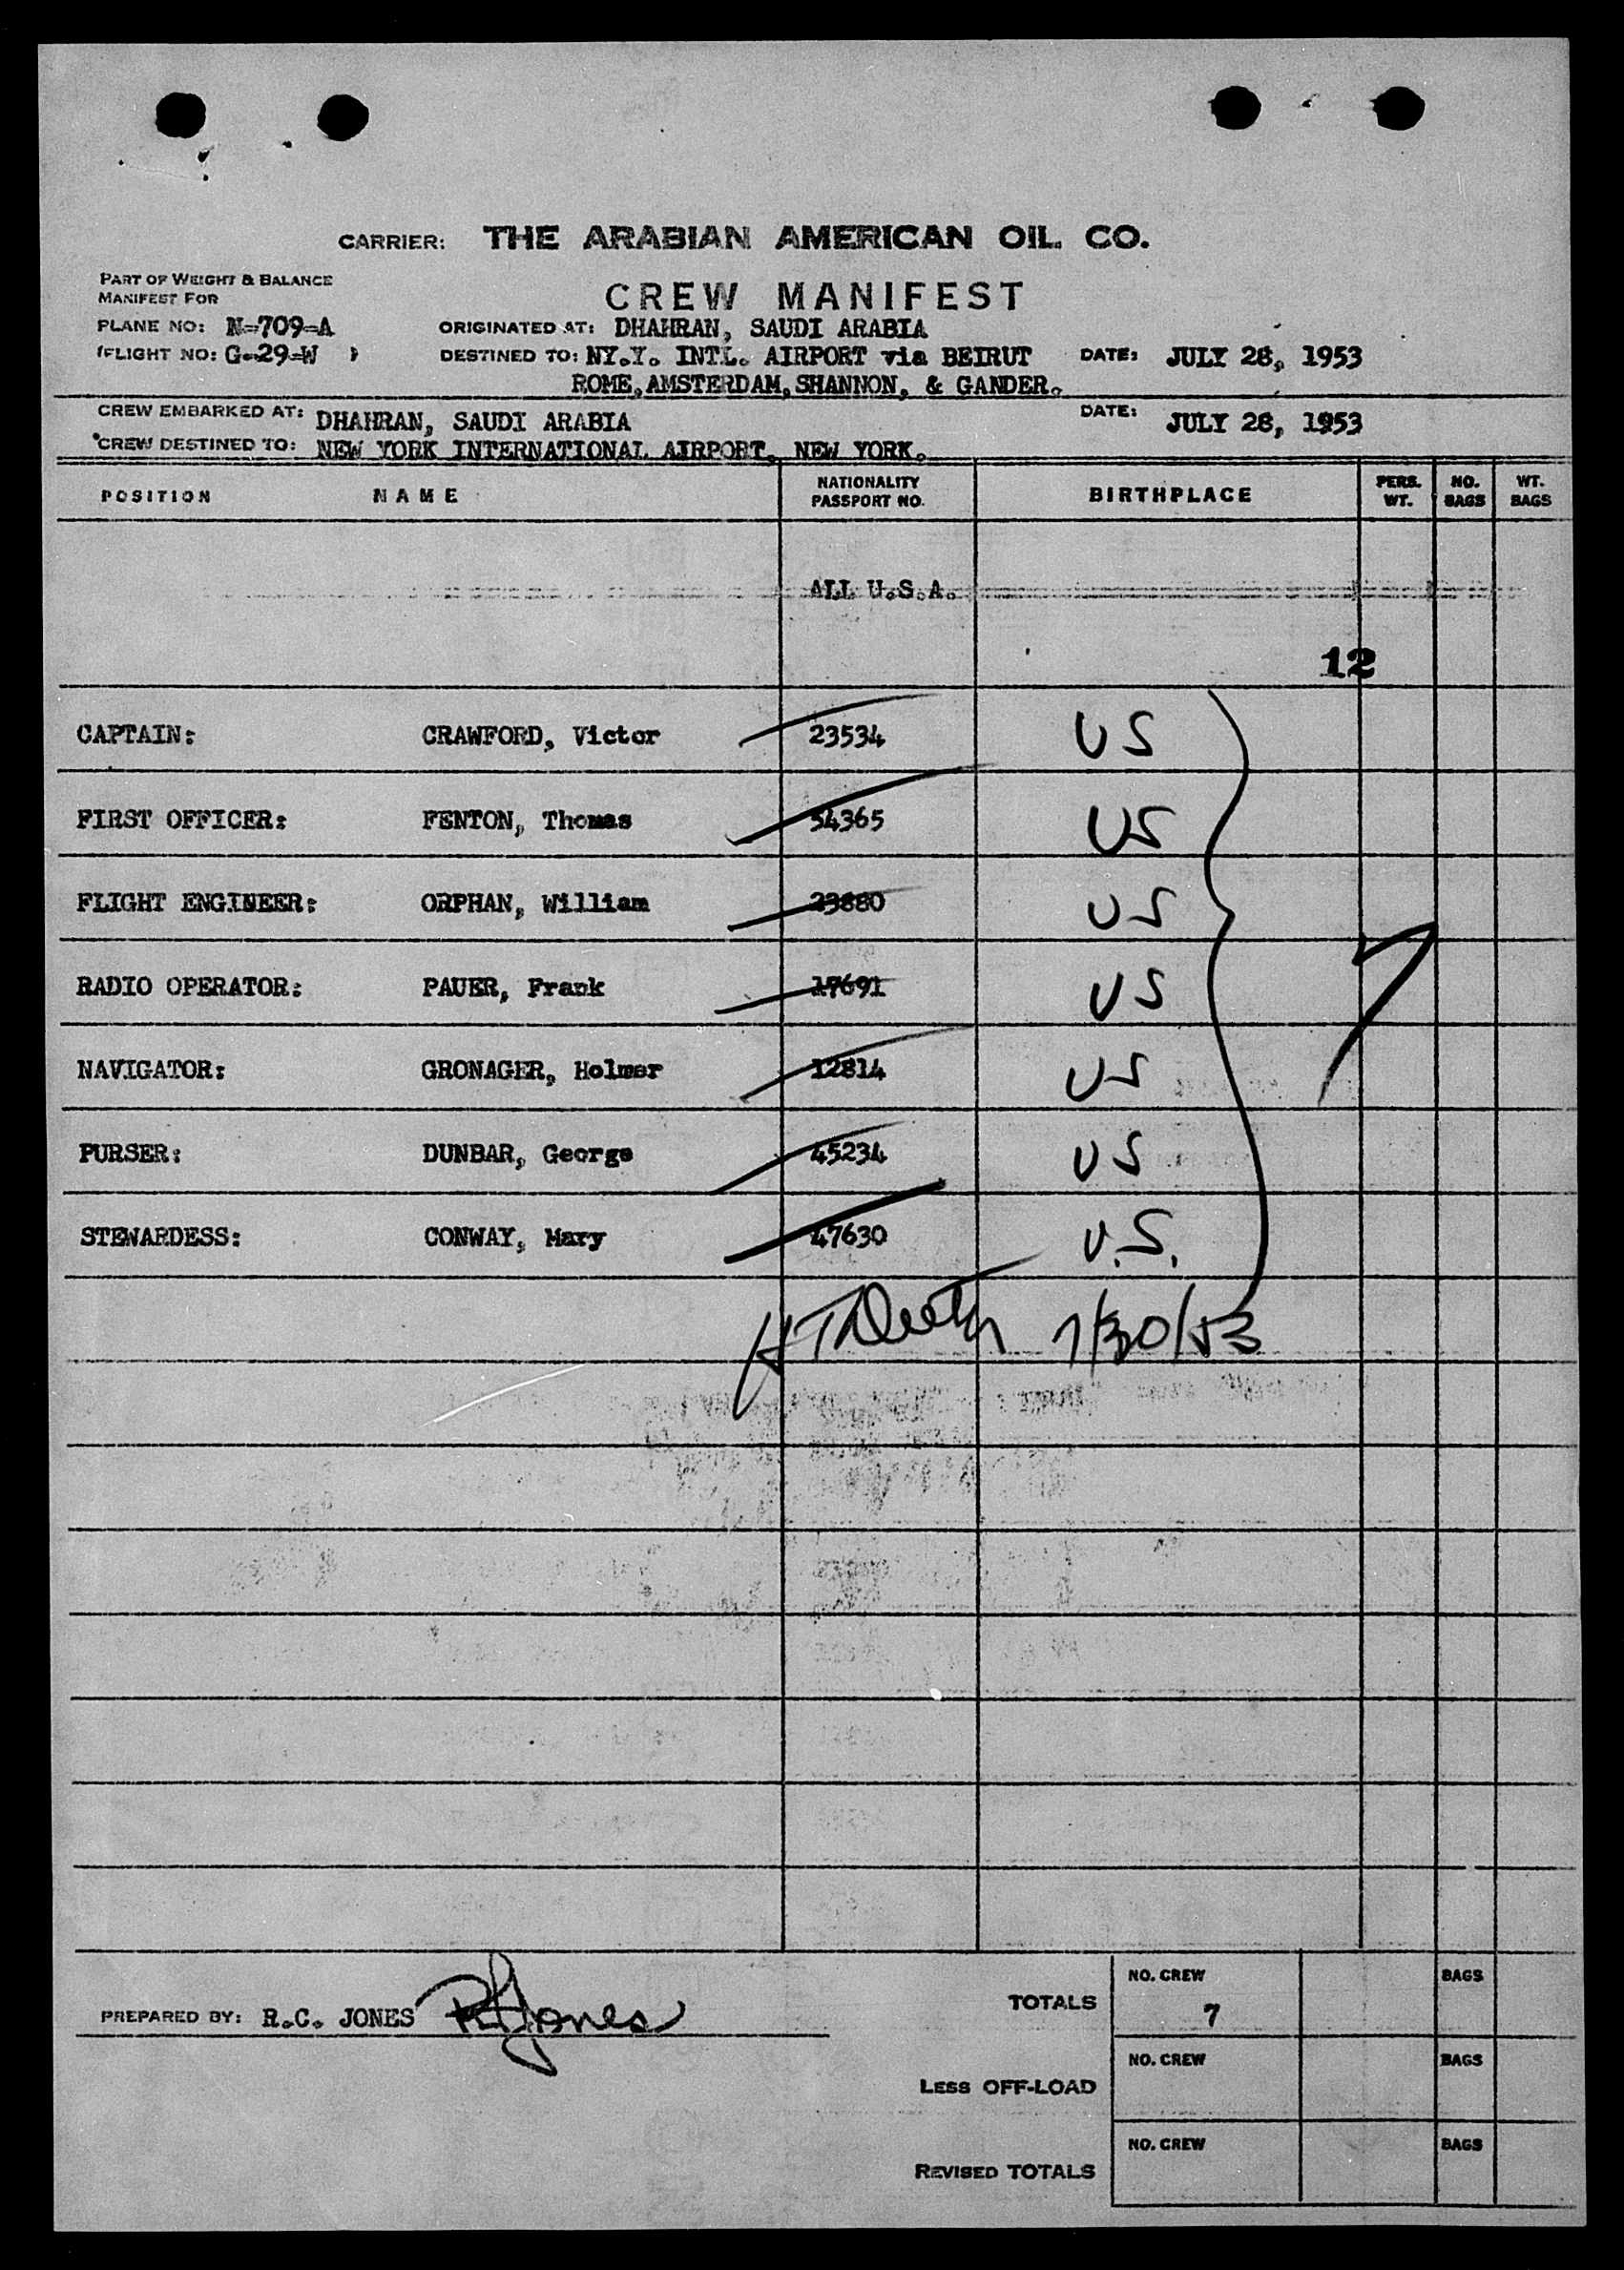 CARRIER: THE ARABIAN AMERICAN OIL CO.
PART OF WEIGHT & BALANCE
MANIFEST FOR
CREW MANIFEST
PLANE NO: N-709-A ORIGINATED AT: DHAHRAN, SAUDI ARABIA
(FLIGHT NO: G-29-W ) DESTINED TO: NY.Y. INTL. AIRPORT via BEIRUT DATE: JULY 28, 1953
ROME, AMSTERDAM, SHANNON, & GANDER.
CREW EMBARKED AT: DHAHRAN, SAUDI ARABIA DATE: JULY 28, 1953
CREW DESTINED TO: NEW YORK INTERNATIONAL AIRPORT, NEW YORK.
POSITION NAME NATIONALITY PASSPORT NO. BIRTHPLACE PERS. WT. NO. BAGS WT. BAGS
ALL U.S.A.
12
CAPTAIN: CRAWFORD, Victor 23534 US
FIRST OFFICER: FENTON, Thomas 54365 US
FLIGHT ENGINEER: ORPHAN, William 23880 US
RADIO OPERATOR: PAUER, Frank 17691 US
NAVIGATOR: GRONAGER, Holmer 12814 US
PURSER: DUNBAR, George 45234 US
STEWARDESS: CONWAY, Mary 47630 U.S.
7/30/53
PREPARED BY: R.C. JONES RCJones
TOTALS NO. CREW 7 BAGS
LESS OFF-LOAD NO. CREW BAGS
REVISED TOTALS NO. CREW BAGS